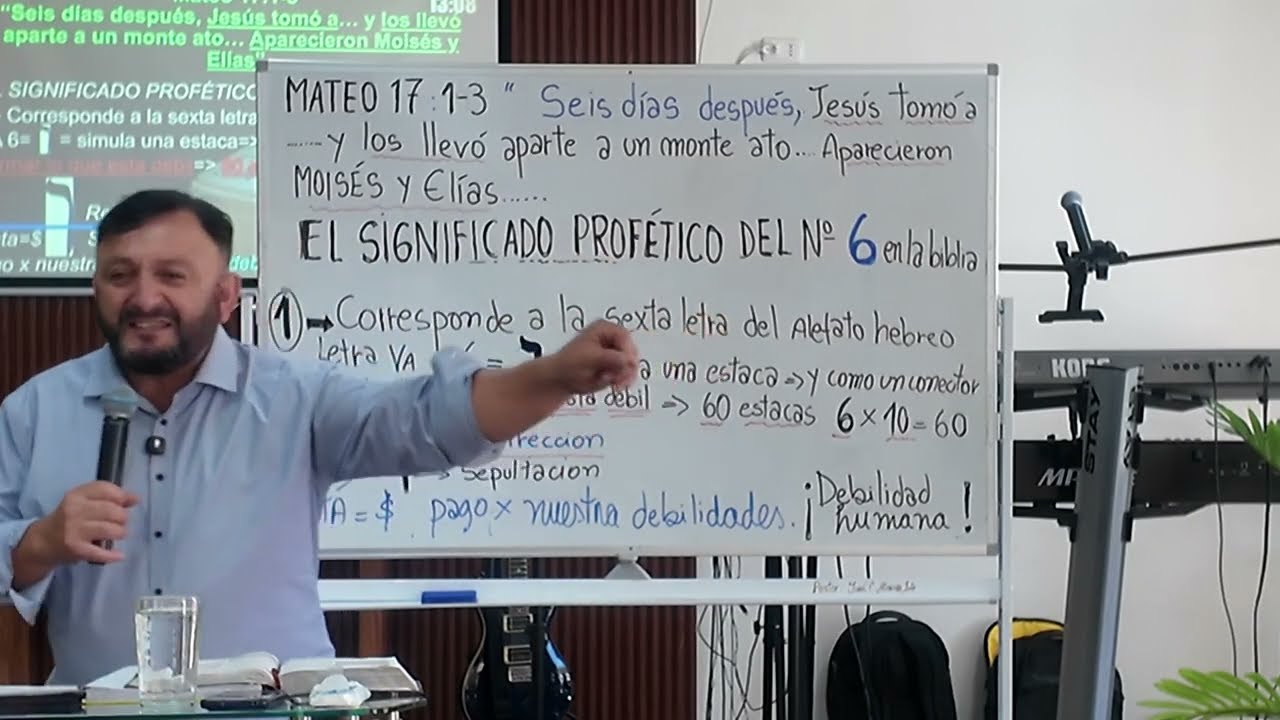 13:08
"Seis días después, Jesús tomó a... y los llevó
aparte a un monte ato... Aparecieron Moisés y
Elías"
SIGNIFICADO PROFÉTICO
Corresponde a la sexta letra
6= = simula una estaca=>
MATEO 17:1-3 " Seis días después, Jesús tomó a
......y los llevó aparte a un monte ato... Aparecieron
MOISÉS y Elías......
EL SIGNIFICADO PROFÉTICO DEL Nº 6 en la biblia
1 → Corresponde a la sexta letra del Alefato hebreo
letra VA = una estaca => y como un conector
debil => 60 estacas 6 x 10 = 60
sepultacion
= $ pago x nuestra debilidades. ¡Debilidad
humana!
KORG
STAY